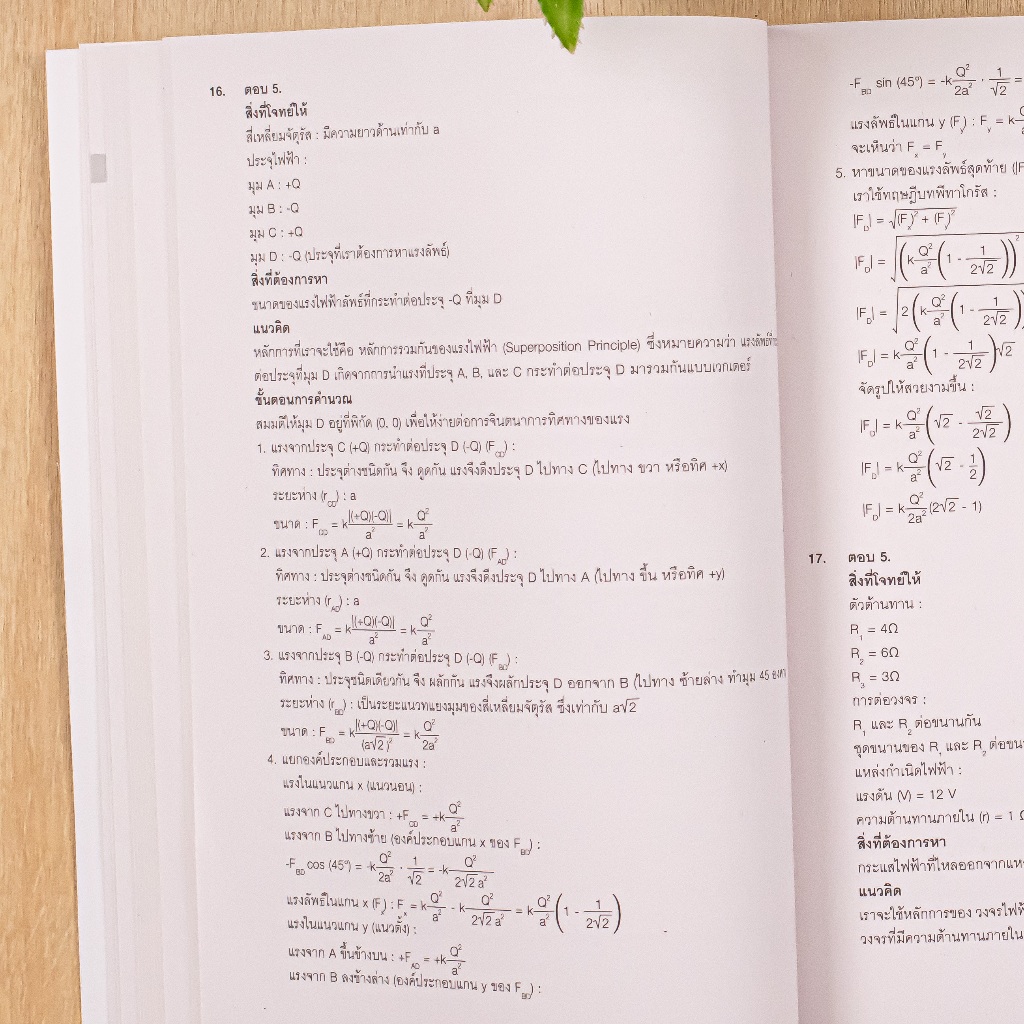 16. ตอบ 5.
สิ่งที่โจทย์ให้
สี่เหลี่ยมจัตุรัส : มีความยาวด้านเท่ากับ a
ประจุไฟฟ้า :
มุม A : +Q
มุม B : -Q
มุม C : +Q
มุม D : -Q (ประจุที่เราต้องการหาแรงลัพธ์)
สิ่งที่ต้องการหา
ขนาดของแรงไฟฟ้าลัพธ์ที่กระทำต่อประจุ -Q ที่มุม D
แนวคิด
หลักการที่เราจะใช้คือ หลักการรวมกันของแรงไฟฟ้า (Superposition Principle) ซึ่งหมายความว่า แรงลัพธ์ที่
ต่อประจุที่มุม D เกิดจากการนำแรงที่ประจุ A, B, และ C กระทำต่อประจุ D มารวมกันแบบเวกเตอร์
ขั้นตอนการคำนวณ
สมมติให้มุม D อยู่ที่พิกัด (0, 0) เพื่อให้ง่ายต่อการจินตนาการทิศทางของแรง
1. แรงจากประจุ C (+Q) กระทำต่อประจุ D (-Q) (F_CD) :
ทิศทาง : ประจุต่างชนิดกัน จึง ดูดกัน แรงจึงดึงประจุ D ไปทาง C (ไปทาง ขวา หรือทิศ +x)
ระยะห่าง (r_CD) : a
ขนาด : F_CD = k|(+Q)(-Q)|/a² = kQ²/a²
2. แรงจากประจุ A (+Q) กระทำต่อประจุ D (-Q) (F_AD) :
ทิศทาง : ประจุต่างชนิดกัน จึง ดูดกัน แรงจึงดึงประจุ D ไปทาง A (ไปทาง ขึ้น หรือทิศ +y)
ระยะห่าง (r_AD) : a
ขนาด : F_AD = k|(+Q)(-Q)|/a² = kQ²/a²
3. แรงจากประจุ B (-Q) กระทำต่อประจุ D (-Q) (F_BD) :
ทิศทาง : ประจุชนิดเดียวกัน จึง ผลักกัน แรงจึงผลักประจุ D ออกจาก B (ไปทาง ซ้ายล่าง ทำมุม 45 องศา
ระยะห่าง (r_BD) : เป็นระยะแนวทแยงมุมของสี่เหลี่ยมจัตุรัส ซึ่งเท่ากับ a√2
ขนาด : F_BD = k|(+Q)(-Q)|/(a√2)² = kQ²/2a²
4. แยกองค์ประกอบและรวมแรง :
แรงในแนวแกน x (แนวนอน) :
แรงจาก C ไปทางขวา : +F_CD = +kQ²/a²
แรงจาก B ไปทางซ้าย (องค์ประกอบแกน x ของ F_BD) :
-F_BD cos (45°) = -kQ²/2a² · 1/√2 = -kQ²/2√2 a²
แรงลัพธ์ในแกน x (F_x) : F_x = kQ²/a² - kQ²/2√2 a² = kQ²/a² (1 - 1/2√2)
แรงในแนวแกน y (แนวตั้ง) :
แรงจาก A ขึ้นข้างบน : +F_AD = +kQ²/a²
แรงจาก B ลงข้างล่าง (องค์ประกอบแกน y ของ F_BD) :
-F_BD sin (45°) = -kQ²/2a² · 1/√2 =
แรงลัพธ์ในแกน y (F_y) : F_y = k
จะเห็นว่า F_x = F_y
5. หาขนาดของแรงลัพธ์สุดท้าย (|F
เราใช้ทฤษฎีบทพีทาโกรัส :
|F_D| = √((F_x)² + (F_y)²)
|F_D| = √((kQ²/a² (1 - 1/2√2))²
|F_D| = √(2(kQ²/a² (1 - 1/2√2))
|F_D| = kQ²/a² (1 - 1/2√2)√2
จัดรูปให้สวยงามขึ้น :
|F_D| = kQ²/a² (√2 - √2/2√2)
|F_D| = kQ²/a² (√2 - 1/2)
|F_D| = kQ²/2a² (2√2 - 1)
17. ตอบ 5.
สิ่งที่โจทย์ให้
ตัวต้านทาน :
R₁ = 4Ω
R₂ = 6Ω
R₃ = 3Ω
การต่อวงจร :
R₁ และ R₂ ต่อขนานกัน
ชุดขนานของ R₁ และ R₂ ต่อ
แหล่งกำเนิดไฟฟ้า :
แรงดัน (V) = 12 V
ความต้านทานภายใน (r) = 1
สิ่งที่ต้องการหา
กระแสไฟฟ้าที่ไหลออกจาก
แนวคิด
เราจะใช้หลักการของ
วงจรที่มีความต้านทานภายใน